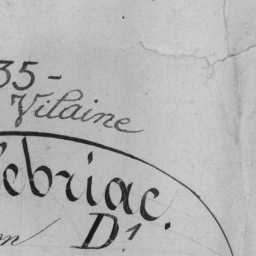 35-
Vilaine
ebriac.
on D.1